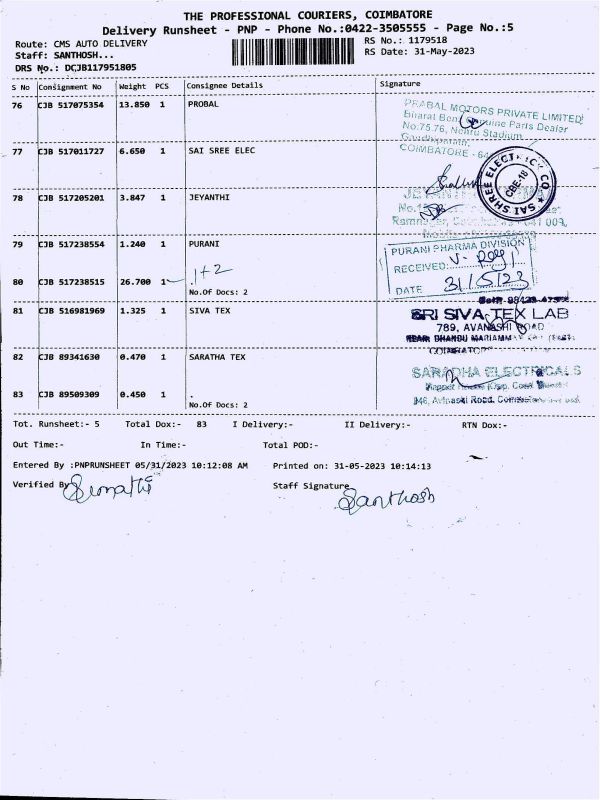 THE PROFESSIONAL COURIERS, COIMBATORE
Delivery Runsheet - PNP - Phone No.:0422-3505555 - Page No.:5
Route: CMS AUTO DELIVERY RS No.: 1179518
Staff: SANTHOSH... RS Date: 31-May-2023
DRS No.: DCJB117951805
S No Consignment No Weight PCS Consignee Details Signature
76 CJB 517075354 13.850 1 PROBAL
PRABAL MOTORS PRIVATE LIMITED
Bharat Benz Genuine Parts Dealer
No.75,76, Nehru Stadium
COIMBATORE - 64
77 CJB 517011727 6.650 1 SAI SREE ELEC
SAI SHREE ELECTRICK CO
CBE-18
78 CJB 517205201 3.847 1 JEYANTHI
79 CJB 517238554 1.240 1 PURANI
PURANI PHARMA DIVISION
1+2
RECEIVED
80 CJB 517238515 26.700 1 .
DATE 31/5/23
No.Of Docs: 2
81 CJB 516981969 1.325 1 SIVA TEX
SRI SIVA TEX LAB
789, AVANASHI ROAD
82 CJB 89341630 0.470 1 SARATHA TEX
SARADHA ELECTRICALS
83 CJB 89509309 0.450 1 .
No.Of Docs: 2
Tot. Runsheet:- 5 Total Dox:- 83 I Delivery:- II Delivery:- RTN Dox:-
Out Time:- In Time:- Total POD:-
Entered By :PNPRUNSHEET 05/31/2023 10:12:08 AM Printed on: 31-05-2023 10:14:13
Verified By Sumathi Staff Signature Santhosh